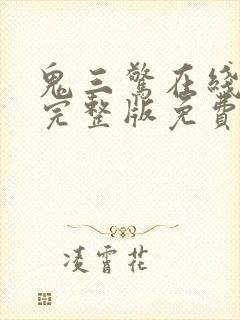 鬼三驚在綫
完整版免費
凌霄花